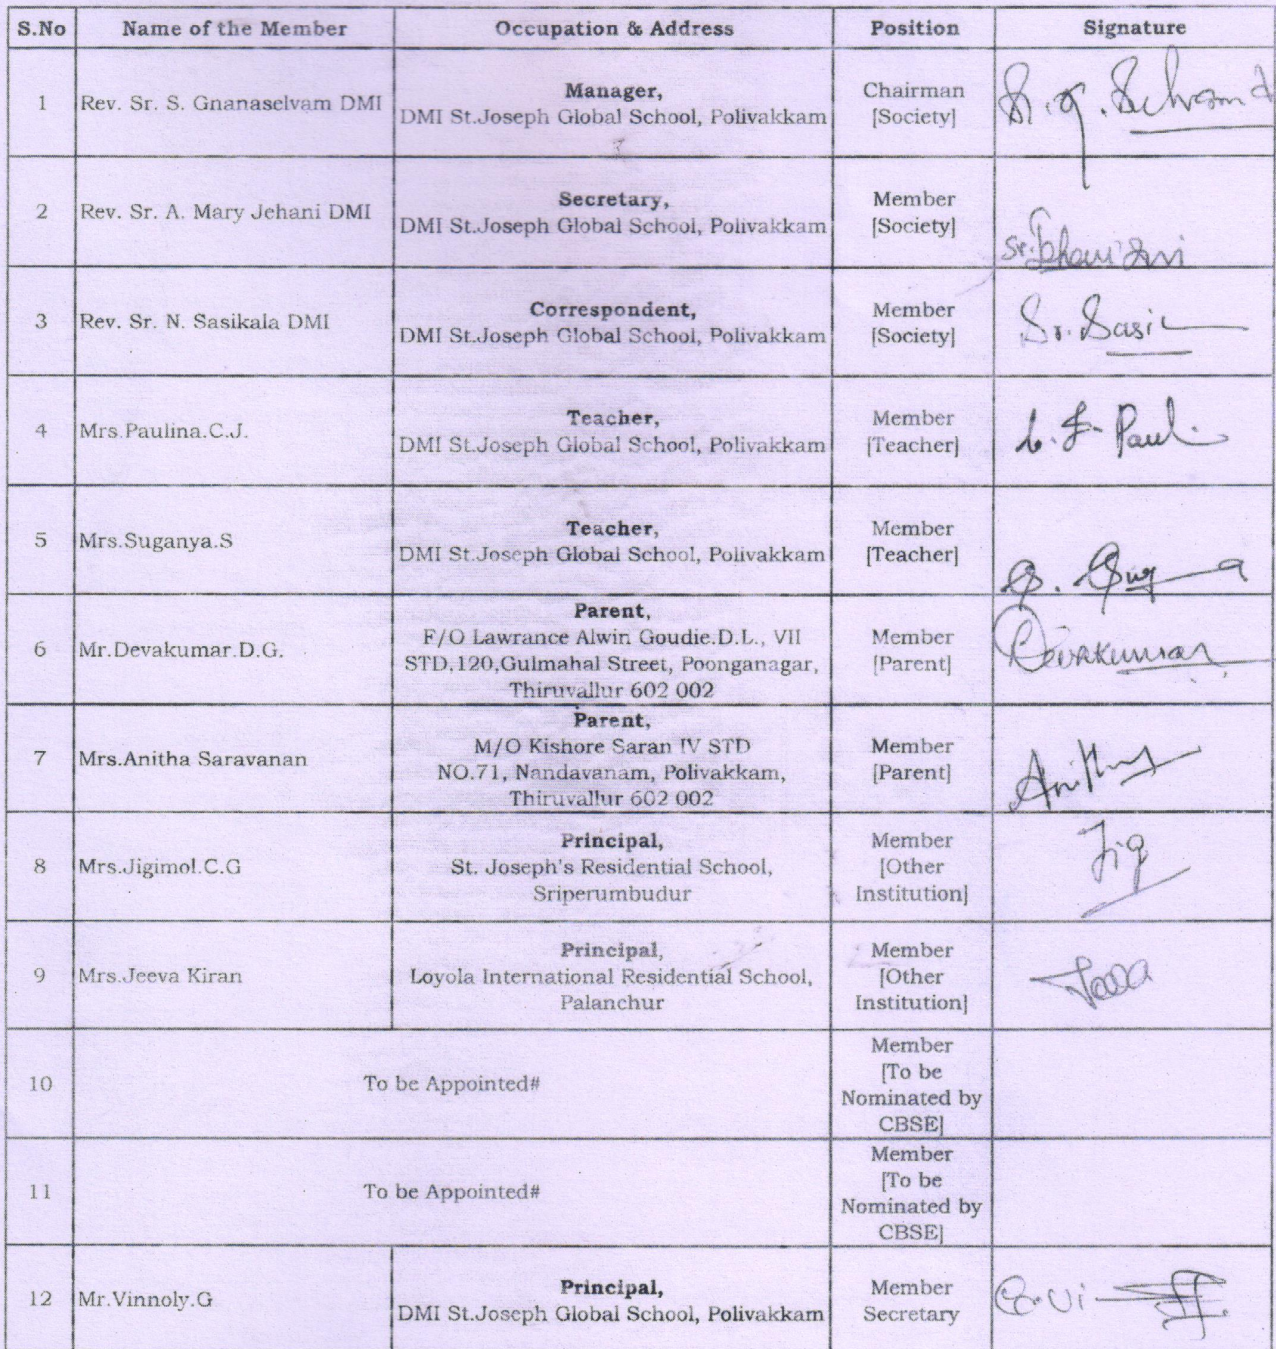 S.No Name of the Member Occupation & Address Position Signature
1 Rev. Sr. S. Gnanaselvam DMI Manager,
DMI St.Joseph Global School, Polivakkam Chairman
[Society]
2 Rev. Sr. A. Mary Jehani DMI Secretary,
DMI St.Joseph Global School, Polivakkam Member
[Society]
3 Rev. Sr. N. Sasikala DMI Correspondent,
DMI St.Joseph Global School, Polivakkam Member
[Society] Sr. Sasi
4 Mrs.Paulina.C.J. Teacher,
DMI St.Joseph Global School, Polivakkam Member
[Teacher] Paul
5 Mrs.Suganya.S Teacher,
DMI St.Joseph Global School, Polivakkam Member
[Teacher]
6 Mr.Devakumar.D.G. Parent,
F/O Lawrance Alwin Goudie.D.L., VII
STD,120,Gulmahal Street, Poonganagar,
Thiruvallur 602 002 Member
[Parent] Devakumar
7 Mrs.Anitha Saravanan Parent,
M/O Kishore Saran IV STD
NO.71, Nandavanam, Polivakkam,
Thiruvallur 602 002 Member
[Parent]
8 Mrs.Jigimol.C.G Principal,
St. Joseph's Residential School,
Sriperumbudur Member
[Other
Institution] Jig
9 Mrs.Jeeva Kiran Principal,
Loyola International Residential School,
Palanchur Member
[Other
Institution]
10 To be Appointed# Member
[To be
Nominated by
CBSE]
11 To be Appointed# Member
[To be
Nominated by
CBSE]
12 Mr.Vinnoly.G Principal,
DMI St.Joseph Global School, Polivakkam Member
Secretary